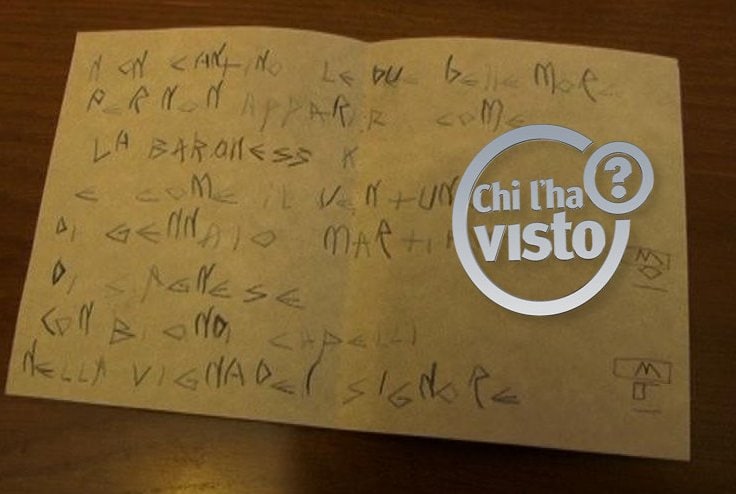 NON CANTINO LE DUE belle MORE
PER NON APPARIR COME
LA BARONESS K
E COME IL VENTUN
DI GENNAIO MARTI
DI S AGNESE
CON BIONDI CAPELLI
NELLA VIGNA DEL SIGNORE
Chi l'ha
visto
?